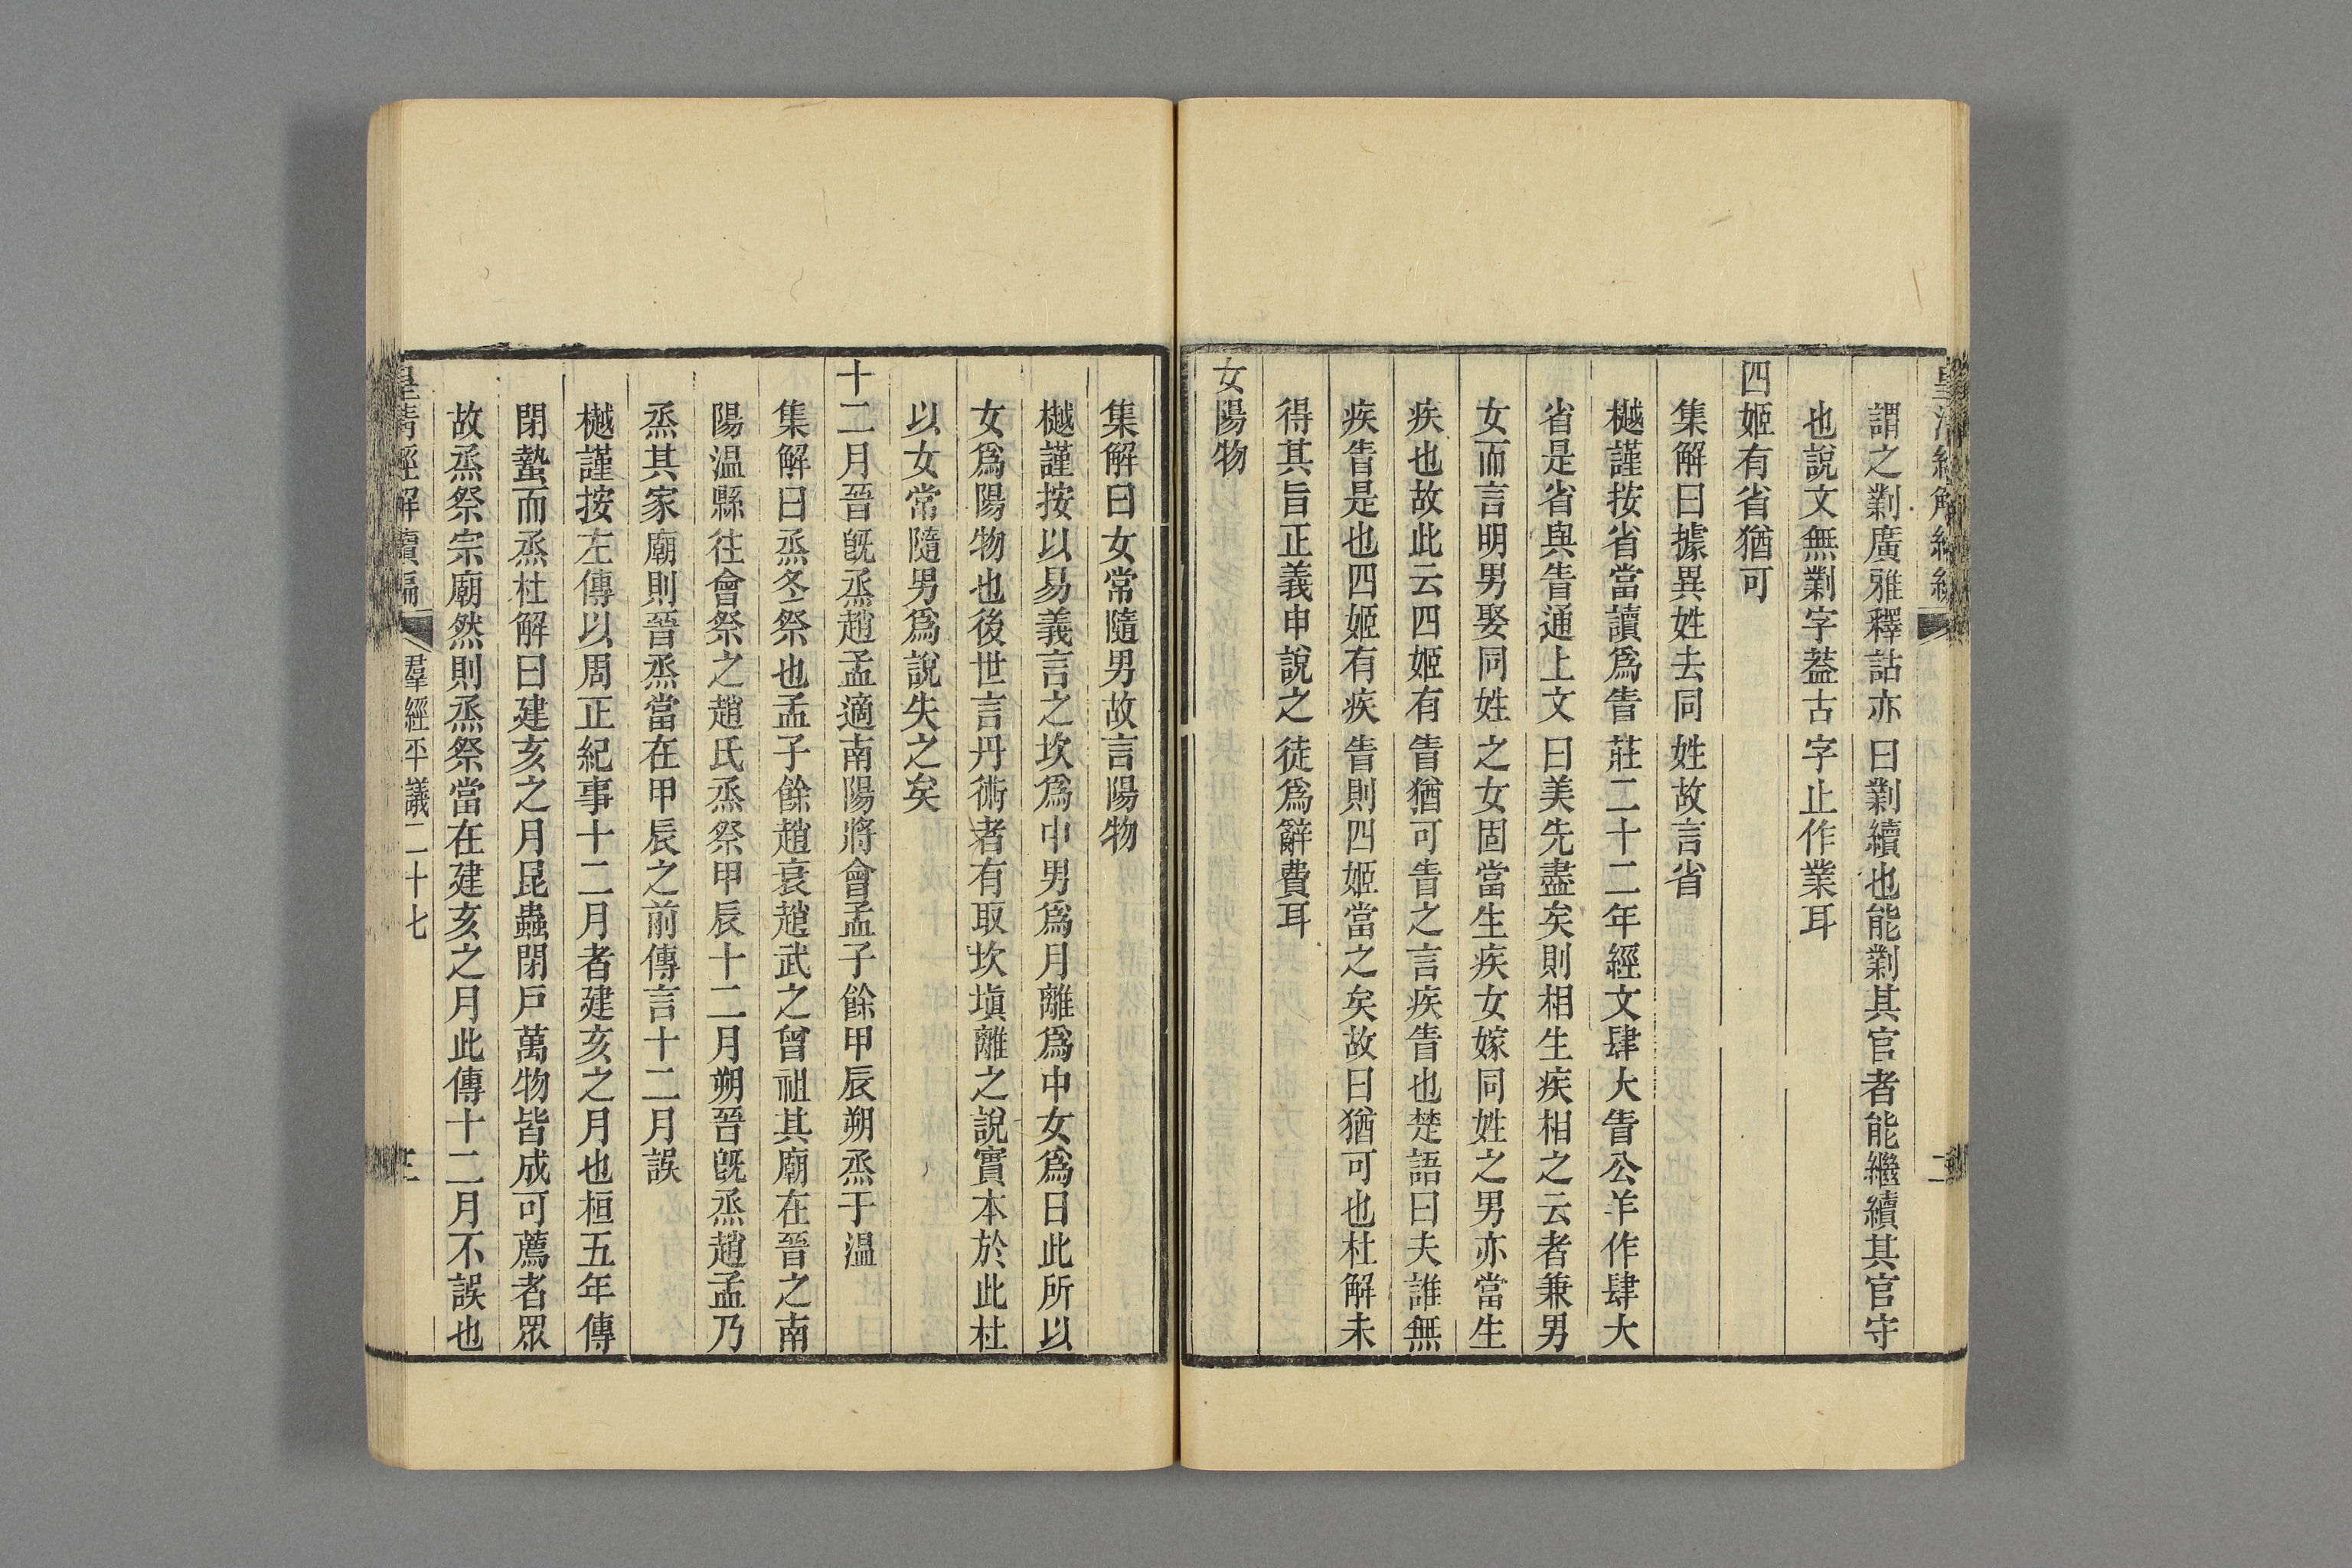 謂之劋廣雅釋詁亦曰劋續也能劋其官者能繼續其官守
也說文無劋字葢古字止作業耳
四姬有省猶可
集解曰據異姓去同姓故言省
樾謹按省當讀爲眚莊二十二年經文肆大眚公羊作肆大
省是省與眚通上文曰美先盡矣則相生疾相之云者兼男
女而言明男娶同姓之女固當生疾女嫁同姓之男亦當生
疾也故此云四姬有眚猶可眚之言疾眚也楚語曰夫誰無
疾眚是也四姬有疾眚則四姬當之矣故曰猶可也杜解未
得其旨正義申說之徒爲辭費耳
女陽物
集解曰女常隨男故言陽物
樾謹按以易義言之坎爲中男爲月離爲中女爲日此所以
女爲陽物也後世言丹術者有取坎塡離之說實本於此杜
以女常隨男爲說失之矣
十二月晉旣烝趙孟適南陽將會孟子餘甲辰朔烝于温
集解曰烝冬祭也孟子餘趙衰趙武之曾祖其廟在晉之南
陽温縣往會祭之趙氏烝祭甲辰十二月朔晉旣烝趙孟乃
烝其家廟則晉烝當在甲辰之前傳言十二月誤
樾謹按左傳以周正紀事十二月者建亥之月也桓五年傳
閉蟄而烝杜解曰建亥之月昆蟲閉戸萬物皆成可薦者眾
故烝祭宗廟然則烝祭當在建亥之月此傳十二月不誤也
皇清經解續編 羣經平議二十七 三